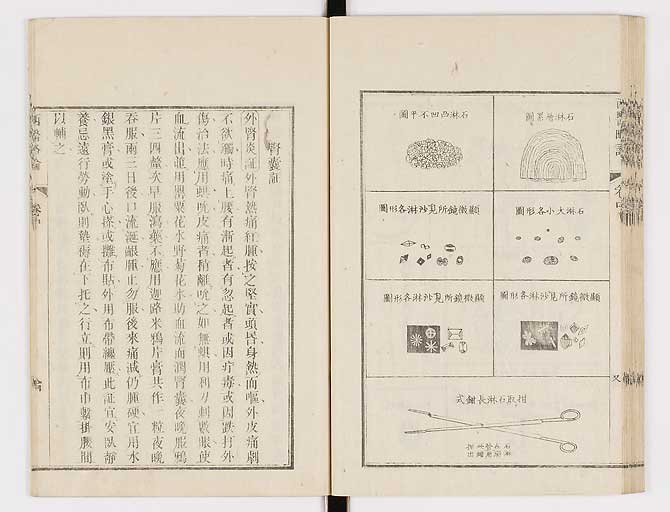 石淋層累圖
石淋凸凹不平圖
石淋大小各形圖
顯微鏡所見沙淋各形圖
顯微鏡所見沙淋各形圖
顯微鏡所見沙淋各形圖
柑取石淋長鉗式
腎囊証
外腎炎証外腎熱痛紅腫按之堅實頭昏身熱而嘔外皮痛劇
不欲觸時痛上腰有漸起者有忽起者或因疔毒或因跌打外
傷治法應用蜞吮皮痛者稍離吮之如無蜞用利刀刺數眼使
血流出並用罌粟花水野菊花水助血流而潤腎囊夜晚服鴉
片三四釐次早服瀉藥不應用迦路米鴉片膏共作一粒夜晚
吞服兩三日後口流涎齦腫止勿服後來痛減仍腫硬宜用水
銀黑膏或塗于心搽或攤布貼外用布帶纏壓此証宜安臥靜
養忌遠行勞動臥則墊褥在下托之行立則用布巾繫掛腰間
以輔之